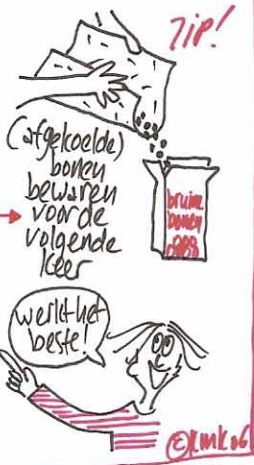 TiP!
(afgekoelde)
bonen
bewaren
voor de
volgende
keer
bruine
bonen
werkt het
beste!